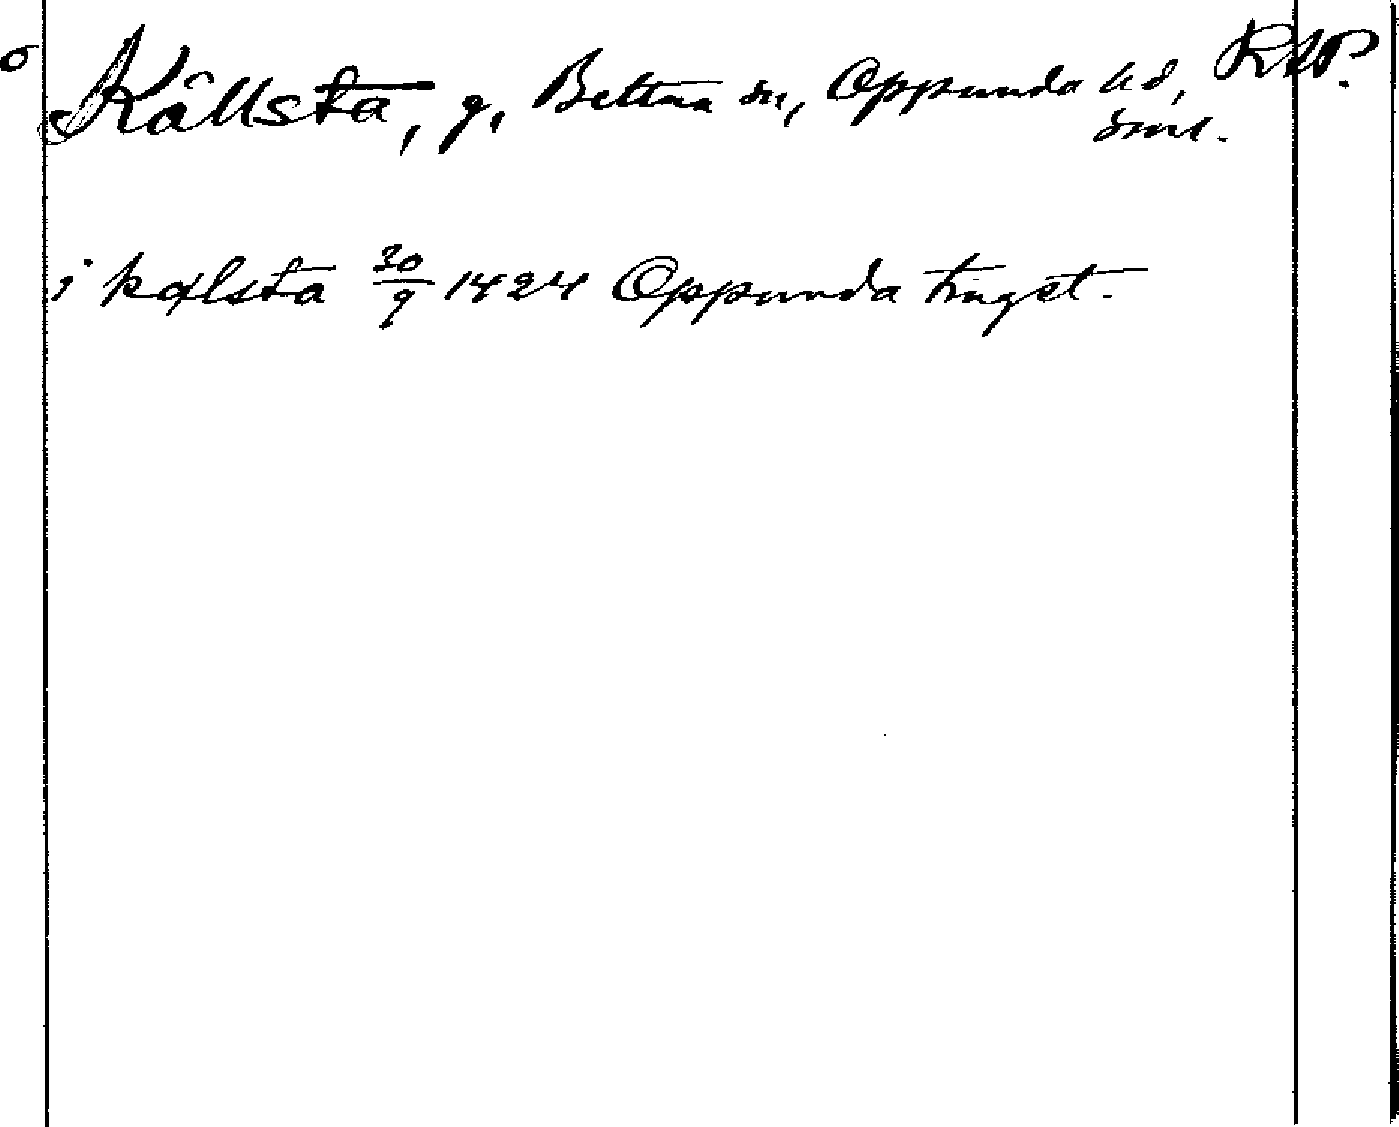 Källsta, g, Bettna sn, Oppunda hd, RAP.
Sml.
i kælsta 30/9 1424 Oppunda tingst.